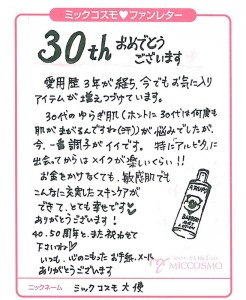 ミックコスモ♥ファンレター
30th おめでとう
ございます
愛用歴3年が経ち、今でもお気に入り
アイテムが増えつづけています。
30代のゆらぎ肌(ホントに30代は何度も
肌がまがるんですね(汗))が悩みでしたが、
今、一番調子がイイです。特にアルピタに
出会ってからはメイクが楽しいくらい!!
お金をかけなくても、敏感肌でも
こんなに充実したスキンケアが
できて、とても幸せです♥
ありがとうございます!
40.50周年と、また祝わせて
下さいね♡
いつも、心のこもった お手紙、メール
ありがとうございます
MICCOSMO
ニックネーム
ミックコスモ大使